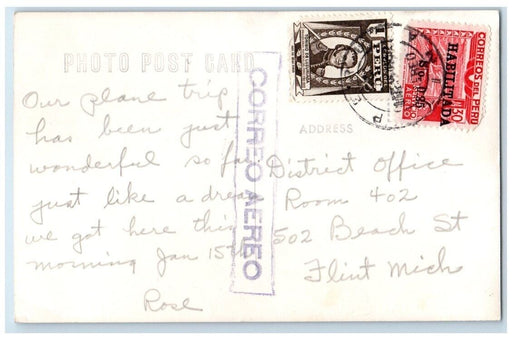 PHOTO POST CARD
Our plane trip
has been just
wonderful so far
just like a dream
we got here this
morning Jan 15th
Rose
CORREO AEREO
ADDRESS
District Office
Room 402
502 Beach St
Flint Mich
PERU
CORREOS DEL PERU
HABILITADA
AEREO